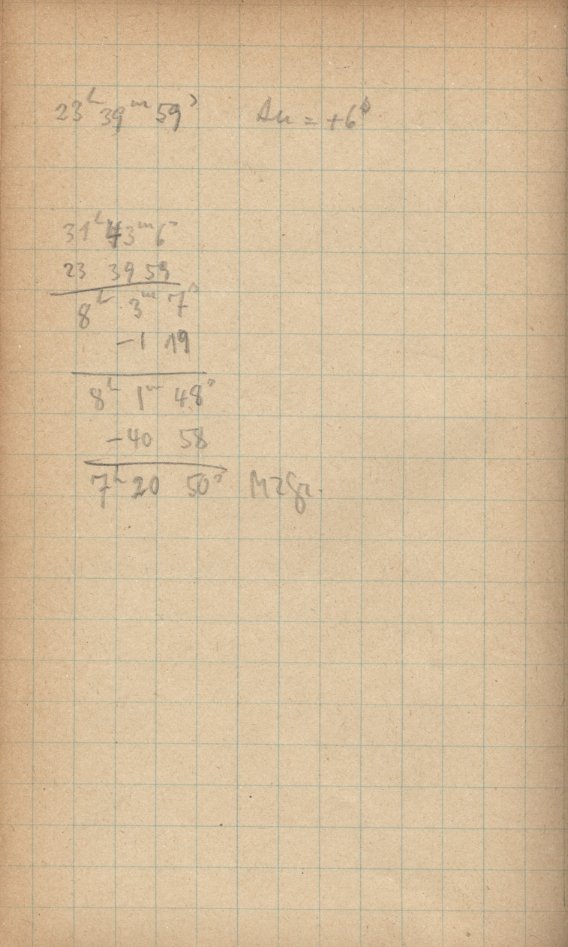 23ʰ 39ᵐ 59ˢ Δu = +6ˢ
31ʰ 43ᵐ 6ˢ
23 39 59
8ʰ 3ᵐ 7ˢ
-1 19
8ʰ 1ᵐ 48ˢ
-40 58
7ʰ 20 50ˢ MZGr.